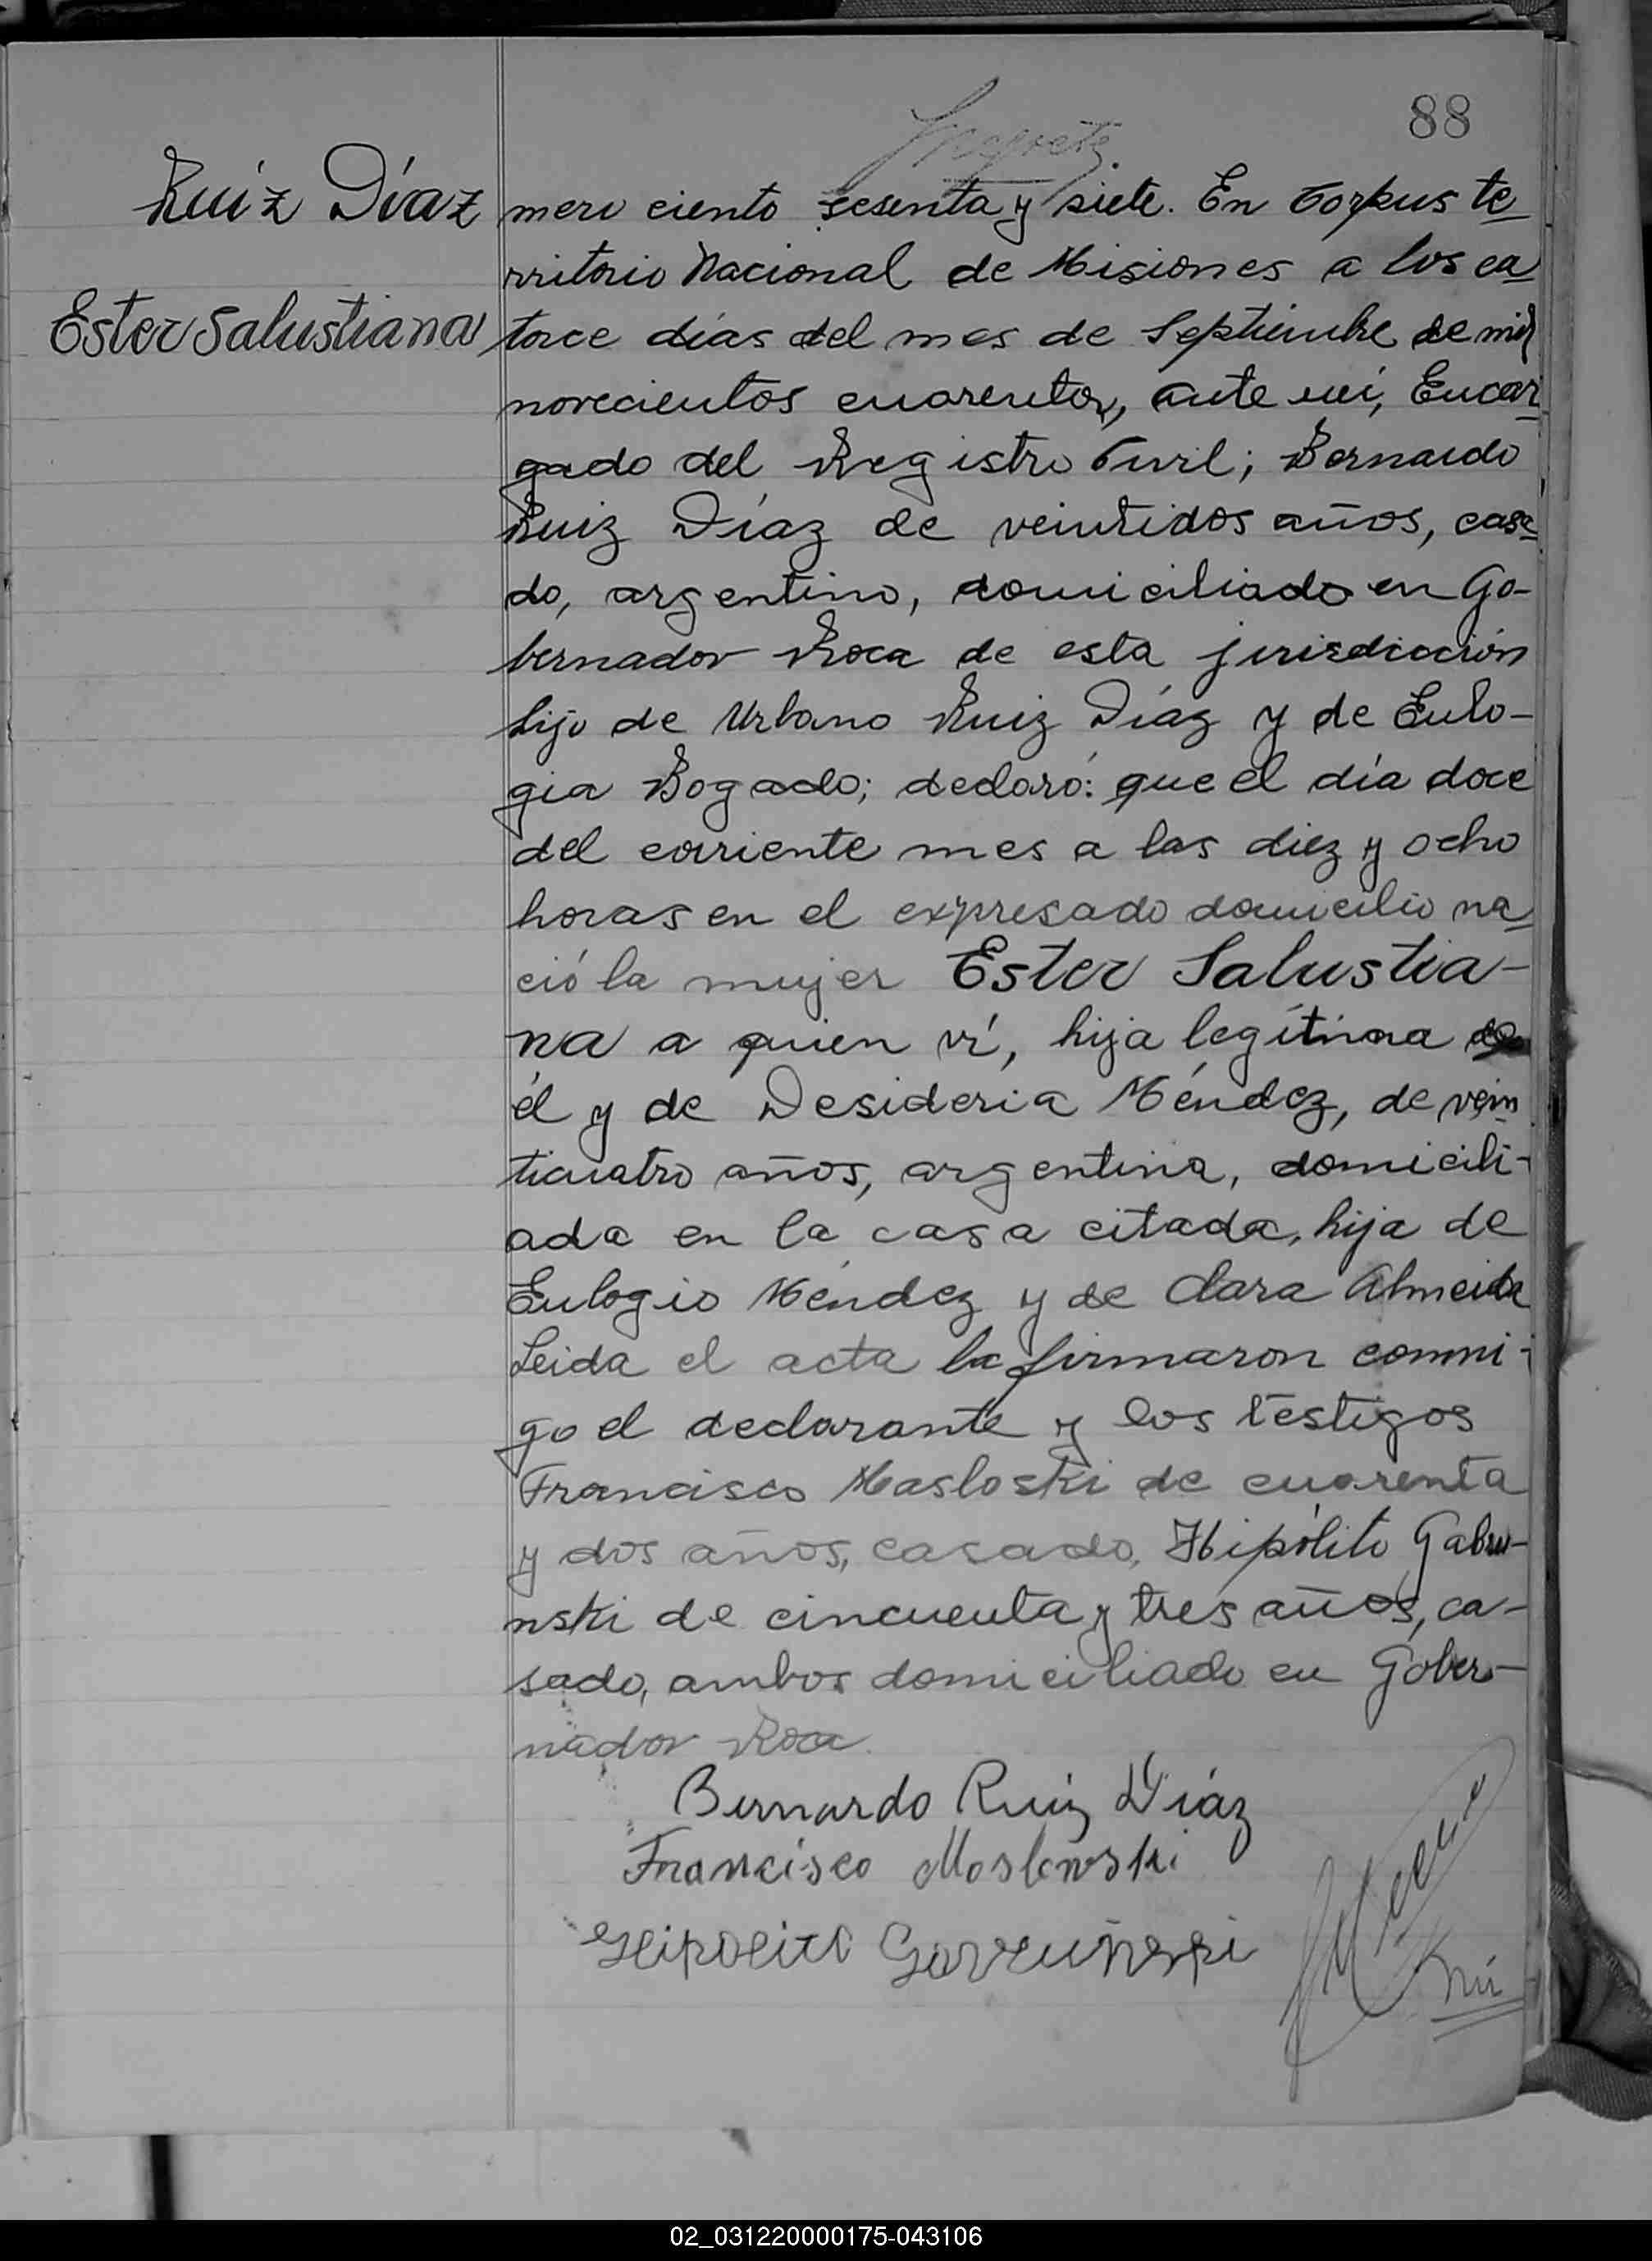 88
Ruiz Díaz
Ester Salustiana
mero ciento sesenta y siete. En Corpus te-
rritorio Nacional de Misiones a los ca-
torce días del mes de Septiembre de mil
novecientos cuarenta, ante mí, Encar-
gado del Registro Civil; Bernardo
Ruiz Díaz de veintidos años, casa-
do, argentino, domiciliado en Go-
bernador Roca de esta jurisdicción
hijo de Urbano Ruiz Díaz y de Eulo-
gia Bogado; declaró: que el día doce
del corriente mes a las diez y ocho
horas en el expresado domicilio na-
ció la mujer Ester Salustia-
na a quien ví, hija legítima de
él y de Desideria Méndez, de vein-
ticuatro años, argentina, domicili-
ada en la casa citada, hija de
Eulogio Méndez y de Clara Almeida
Leida el acta la firmaron conmi-
go el declarante y los testigos
Francisco Masloski de cuarenta
y dos años, casado, Hipólito Gabru-
nski de cincuenta y tres años, ca-
sado, ambos domiciliado en Gober-
nador Roca.
Bernardo Ruiz Díaz
Francisco Moslowski
Hipolito
Nú
02_031220000175-043106